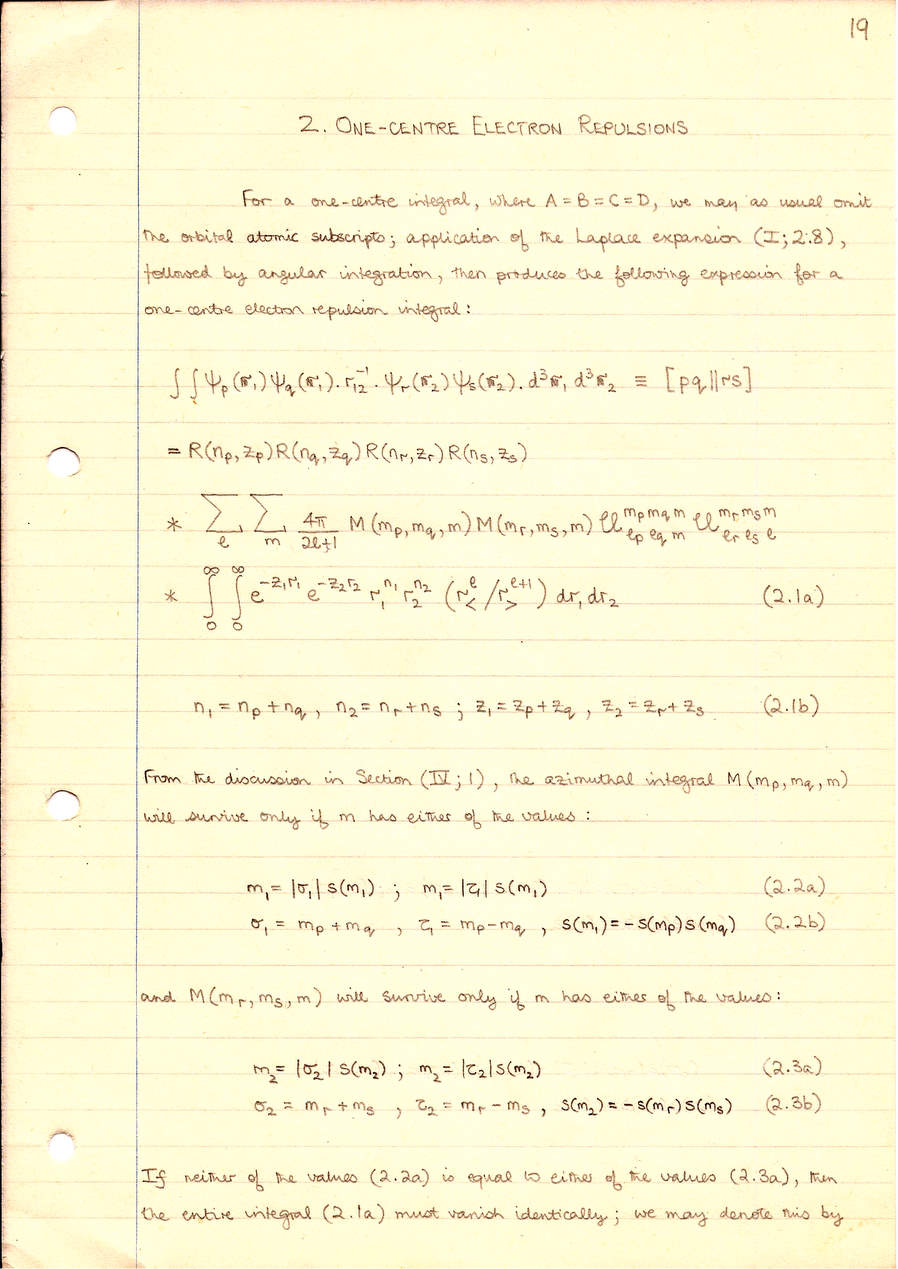 19
2. ONE-CENTRE ELECTRON REPULSIONS
For a one-centre integral, where A = B = C = D, we may as usual omit
the orbital atomic subscripts; application of the Laplace expansion (I; 2.8),
followed by angular integration, then produces the following expression for a
one-centre electron repulsion integral:
∫∫ ψp(r₁) ψq(r₁) . r₁₂⁻¹ . ψr(r₂) ψs(r₂) . d³r₁ d³r₂ ≡ [pq||rs]
= R(np, zp) R(nq, zq) R(nr, zr) R(ns, zs)
* Σ_ℓ Σ_m 4π/(2ℓ+1) M(mp, mq, m) M(mr, ms, m) 𝒰^{mp mq m}_{ℓp ℓq m} 𝒰^{mr ms m}_{ℓr ℓs ℓ}
* ∫₀^∞ ∫₀^∞ e^{-z₁r₁} e^{-z₂r₂} r₁^{n₁} r₂^{n₂} (r_<^ℓ / r_>^{ℓ+1}) dr₁ dr₂ (2.1a)
n₁ = np + nq , n₂ = nr + ns ; z₁ = zp + zq , z₂ = zr + zs (2.1b)
From the discussion in Section (IV; 1), the azimuthal integral M(mp, mq, m)
will survive only if m has either of the values:
m₁ = |σ₁| s(m₁) ; m₁ = |τ₁| s(m₁) (2.2a)
σ₁ = mp + mq , τ₁ = mp - mq , s(m₁) = - s(mp) s(mq) (2.2b)
and M(mr, ms, m) will survive only if m has either of the values:
m₂ = |σ₂| s(m₂) ; m₂ = |τ₂| s(m₂) (2.3a)
σ₂ = mr + ms , τ₂ = mr - ms , s(m₂) = - s(mr) s(ms) (2.3b)
If neither of the values (2.2a) is equal to either of the values (2.3a), then
the entire integral (2.1a) must vanish identically; we may denote this by